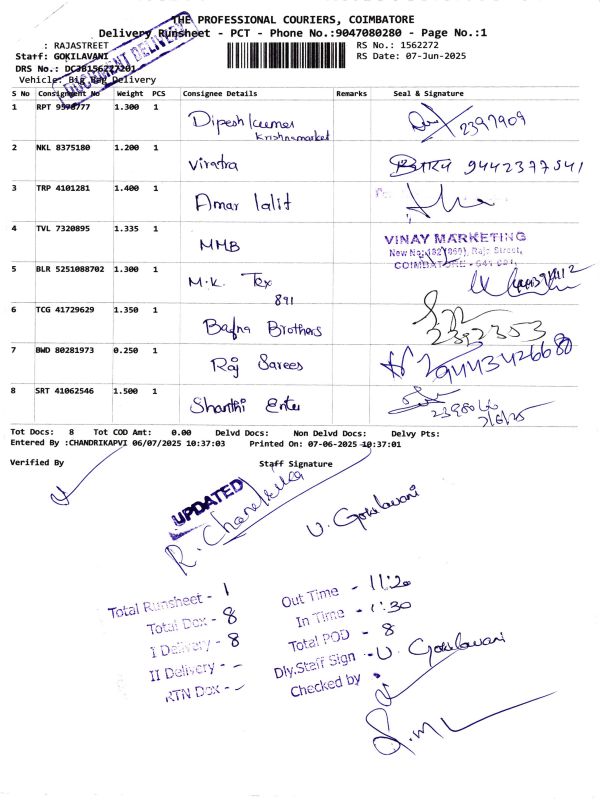 THE PROFESSIONAL COURIERS, COIMBATORE
Delivery Runsheet - PCT - Phone No.:9047080280 - Page No.:1
: RAJASTREET
RS No.: 1562272
Staff: GOKILAVANI
RS Date: 07-Jun-2025
DRS No.:
Vehicle: Big Bag Delivery
DOCUMENT DELIVERY
S No Consignment No Weight PCS Consignee Details Remarks Seal & Signature
1 RPT 1.300 1 Dipesh kumar 2397909
Krishnamarket
2 NKL 8375180 1.200 1 Viratra 9442377541
3 TRP 4101281 1.400 1 Amar lalit
4 TVL 7320895 1.335 1 MMB
VINAY MARKETING
New No: Raja Street,
COIMBATORE - 641 001.
5 BLR 5251088702 1.300 1 M.K. Tex
891
6 TCG 41729629 1.350 1 Bafna Brothers 2392353
7 BWD 80281973 0.250 1 Raj Sarees 9443426680
8 SRT 41062546 1.500 1 Shanthi Enter
7/6/25
Tot Docs: 8 Tot COD Amt: 0.00 Delvd Docs: Non Delvd Docs: Delvy Pts:
Entered By :CHANDRIKAPVI 06/07/2025 10:37:03 Printed On: 07-06-2025 10:37:01
Verified By Staff Signature
UPDATED
R. Chandrika
U. Gokilavani
Total Runsheet - 1
Total Dox - 8
I Delivery - 8
II Delivery - -
RTN Dox - -
Out Time - 11:20
In Time - 1:30
Total POD - 8
Dly.Staff Sign - U. Gokilavani
Checked by